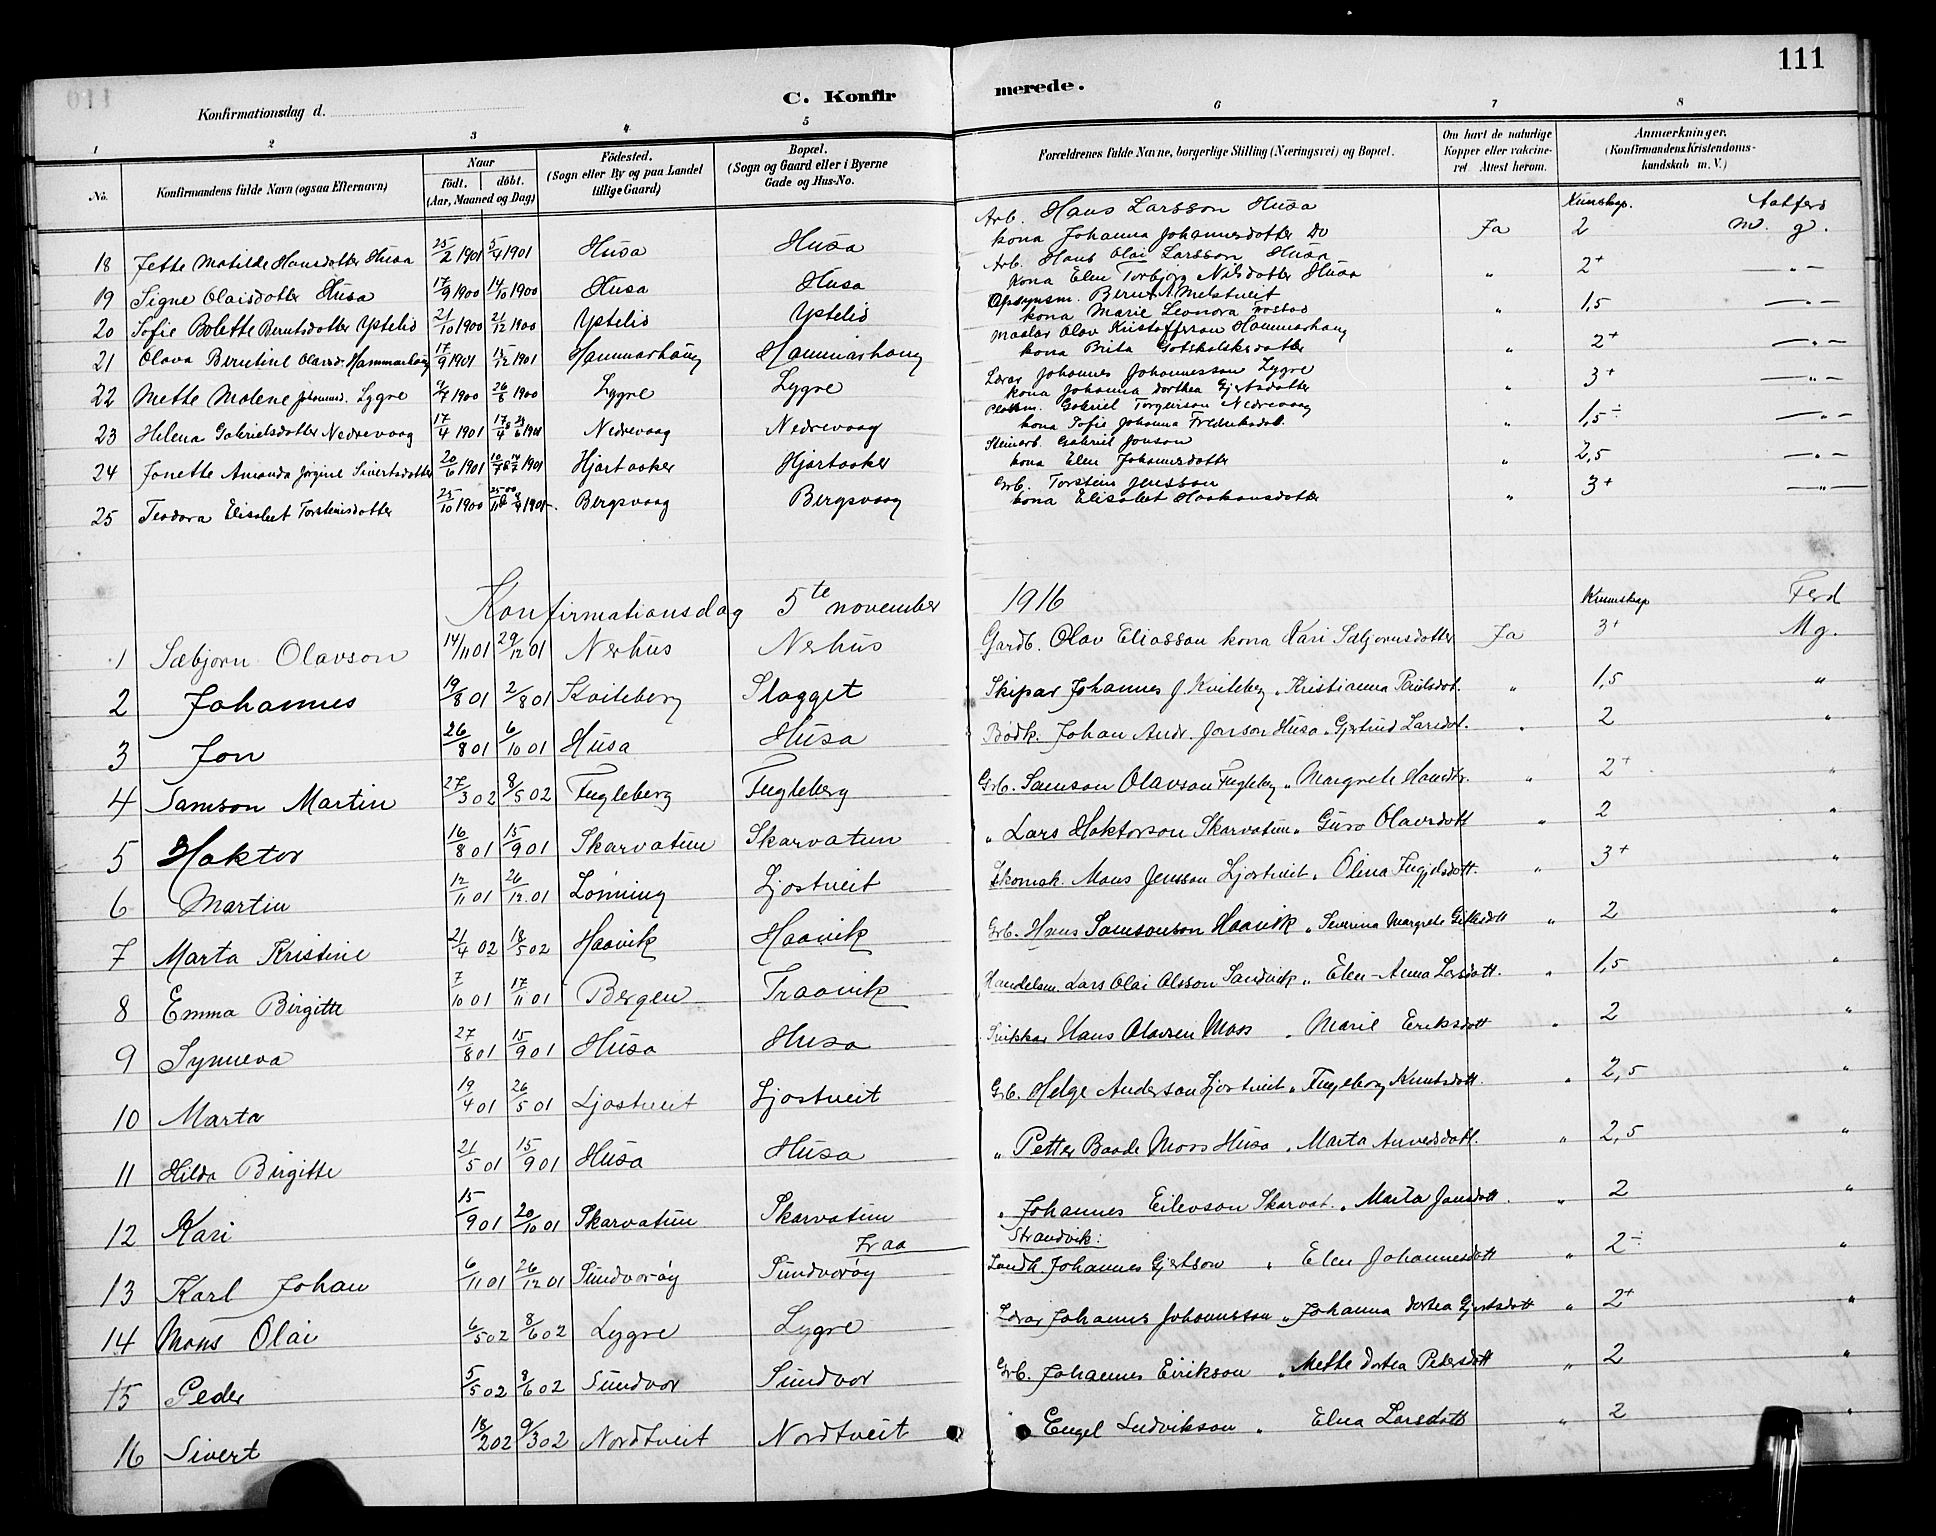 111
C. Konfirmerede.
Konfirmationsdag d.
1 2 3 4 5 6 7 8
No. Konfirmandens fulde Navn (ogsaa Efternavn) Naar födt. döbt. (Aar, Maaned og Dag) Födested. (Sogn eller By og paa Landet tillige Gaard) Bopæl. (Sogn og Gaard eller i Byerne Gade og Hus-No. Forældrenes fulde Navne, borgerlige Stilling (Næringsvei) og Bopæl. Om havt de naturlige Kopper eller vaccineret. Attest herom. Anmærkninger. (Konfirmandens Kristendomskundskab m. V.)
Kunskap. Aatferd
18 Jette Matilde Hansdotter Husa 25/2 1901 5/4 1901 Husa Husa Arb. Hans Larsson Husa Ja 2 M. g.
kona Johanna Johannesdotter Do
19 Signe Olaisdotter Husa 17/9 1900 14/10 1900 Husa Husa Arb. Hans Olai Larsson Husa " 2+ -"-
kona Elen Torbjørg Nilsdotter Husa
20 Sofie Bolette Berntsdotter Ystelid 21/10 1900 21/12 1900 Ystelid Ystelid Opsynsm. Bernt A. Melstveit " 1,5 -"-
kona Marie Leonora
21 Olava Berntine Olavsd. Hammarhaug 17/9 1901 15/12 1901 Hammarhaug Hammarhaug Maalar Olav Kristofferson Hammarhaug " 2+ -"-
kona Brita Gotskalksdotter
22 Mette Malene Johannesd. Lygre 9/7 1900 26/8 1900 Lygre Lygre Lærar Johannes Johannesson Lygre " 3+ -"-
kona Johanna Dorthea Gjertsdotter
23 Helena Gabrielsdotter Nedrevaag 17/4 1901 Nedrevaag Nedrevaag Gabriel Torgeirson Nedrevaag " 1,5÷ -"-
kona Sofie Johanna Fredriksdot.
24 Jonette Amanda Jørgine Sivertsdotter 20/6 1901 Hjartaaker Hjartaaker Steinarb. Gabriel Jonson " 2,5 -"-
kona Elen Johannesdotter
25 Teodora Elisabet Torsteinsdotter 25/10 1900 Bergsvaag Bergsvaag Grb. Torstein Jensson " 3+ -"-
kona Elisabet Haakonsdotter
Konfirmationsdag 5te november 1916 Kunnskap Ferd
1 Sæbjørn Olavson 14/11 01 29/12 01 Nerhus Nerhus Gardb. Olav Eliasson kona Kari Sæbjørnsdotter Ja 3+ Mg.
2 Johannes 19/8 01 2/8 01 Kviteberg Slagget Skipar Johannes J. Kviteberg " Kristianna Paulsdot. " 1,5 "
3 Jon 26/8 01 6/10 01 Husa Husa Bødk. Johan Andr. Jonson Husa " Gjertrud Larsdot. " 2 "
4 Samson Martin 27/3 02 8/5 02 Fugleberg Fugleberg Grb. Samson Olavson Fugleberg " Margrete Hansdtr. " 2+ "
5 Haktor 16/8 01 15/9 01 Skarvatun Skarvatun " Lars Haktorson Skarvatun " Guro Olavsdott " 2 "
6 Martin 12/11 01 26/12 01 Lønning Ljostveit Skomak. Mons Jensson Ljostveit " Olina " 3+ "
7 Marta Kristine 21/4 02 18/5 02 Haavik Haavik Grb. Hans Samsonson Haavik " Severina Margrete " 2 "
8 Emma Birgitte 7/10 01 17/11 01 Bergen Traavik Handelsm. Lars Olai Olsson Sandvik " Elen-Anna Larsdott. " 1,5 "
9 Synneva 27/8 01 15/9 01 Husa Husa Snikkar Hans Olavsen Moss " Marie Eriksdott " 2 "
10 Marta 19/4 01 26/5 01 Ljostveit Ljostveit Grb. Helge Anderson Ljostveit " Ingeborg Knutsdott. " 2,5 "
11 Hilda Birgitte 21/5 01 15/9 01 Husa Husa " Petter Baade Moss Husa " Marta " 2,5 "
12 Kari 15/9 01 20/10 01 Skarvatun Skarvatun " Johannes Eilevson Skarvat. " Marta Jansdott. " 2 "
Fraa Strandvik:
13 Karl Johan 6/11 01 26/12 01 Sundvorøy Sundvorøy Landh. Johannes Gjertson " Elen Johannesdott " 2÷ "
14 Mons Olai 6/5 02 8/6 02 Lygre Lygre Lærar Johannes Johannesson " Johanna Dortea Gjertsdott " 2+ "
15 Peder 5/5 02 8/6 02 Sundvor Sundvor Grb. Johannes Eirikson " Mette Dortea Pedersdott " 2 "
16 Sivert 18/2 02 9/3 02 Nordtveit Nordtveit " Engel Ludvikson " Elna Larsdott " 2 "